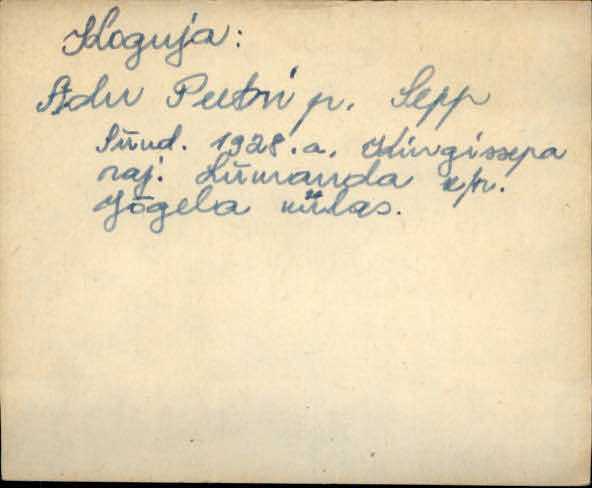 Koguja:
Adu Peetri p. Sepp
Sünd. 1928.a. Kingissepa
raj. Lümanda k/n.
Jõgela külas.